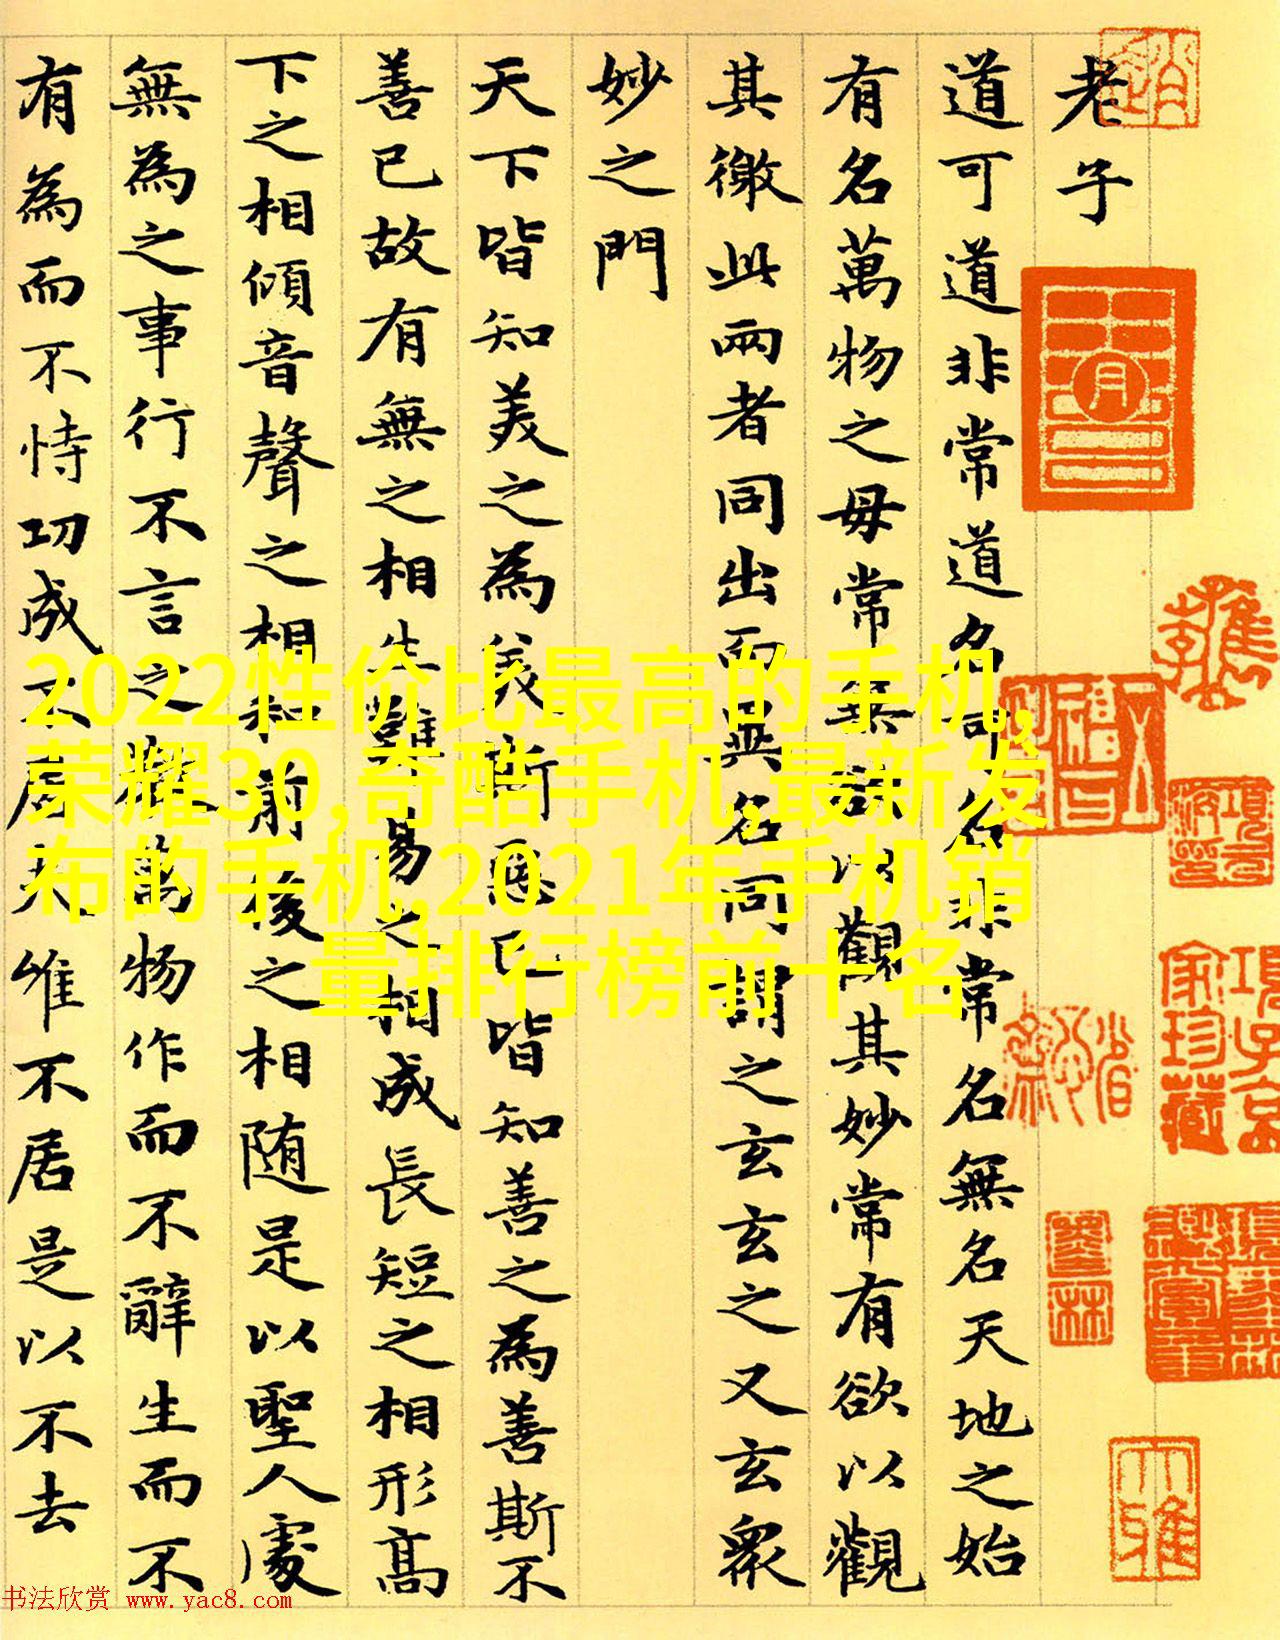 老子
道可道非常道名可名非常名無名天地之始
有名萬物之母常無欲以觀其妙常有欲以觀
其徼此兩者同出而異名同謂之玄玄之又玄衆
妙之門
天下皆知美之為美斯惡已皆知善之為善斯不
善已故有無之相生難易之相成長短之相形高
下之相傾音聲之相和前後之相随是以聖人處
無為之事行不言之教萬物作而不辭生而不
有為而不恃功成不居夫唯不居是以不去
2022性价比最高的手机,
荣耀30,奇酷手机,最新发
布的手机,2021年手机销
量排行榜前十名
項子京
家珍藏
书法欣赏 www.yac8.com